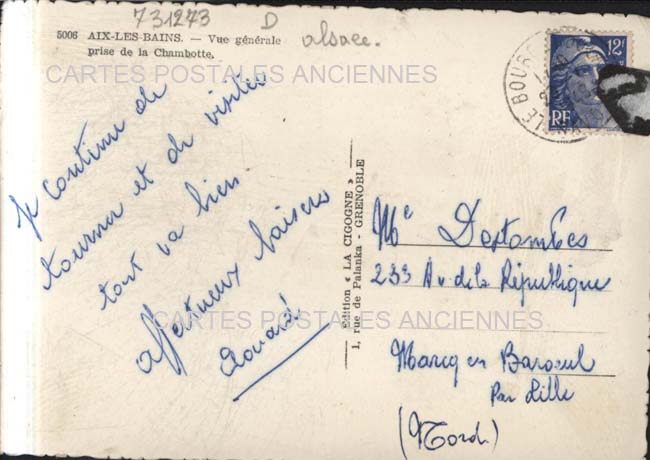 731273 D
alsace.
5006 AIX-LES-BAINS. — Vue générale
prise de la Chambotte.
CARTES POSTALES ANCIENNES
12F
RF
LE BOURG
Je continue de
tourner et de visiter
tout va bien
affectueux baisers
Edouard
Edition « LA CIGOGNE »
1, rue de Palanka - GRENOBLE
Me Destombes
233 Av de la République
CARTES POSTALES ANCIENNES
Marcq en Baroeul
Par Lille
(Nord)